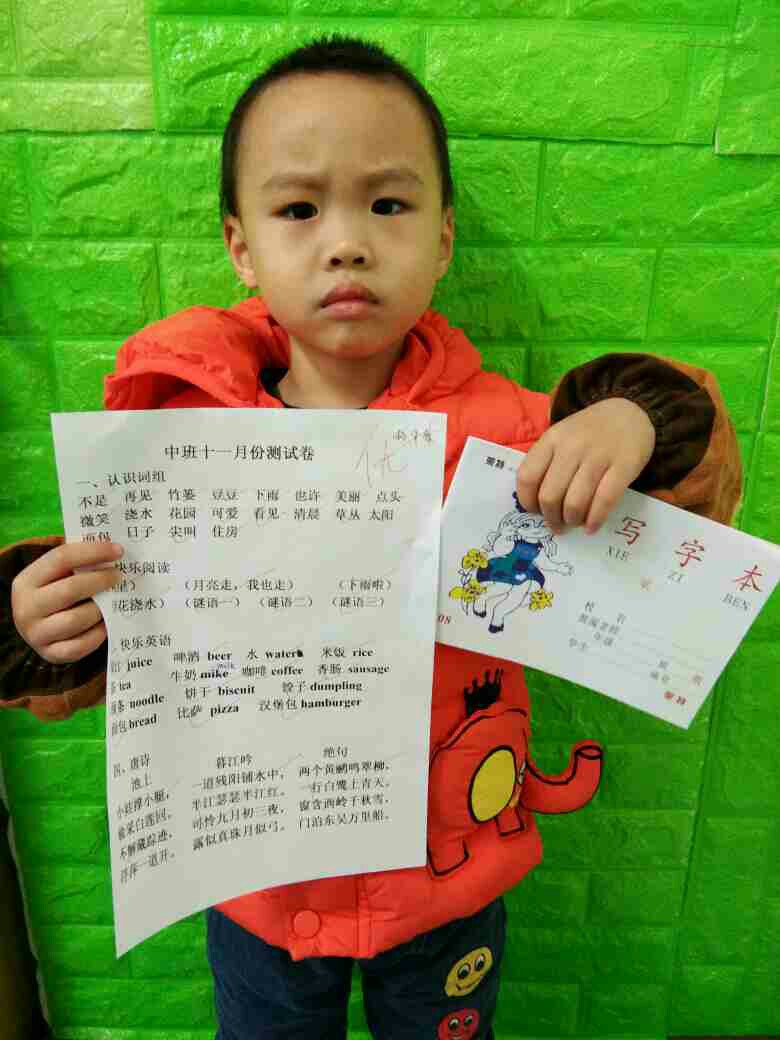 中班十一月份测试卷
优
一、认识词组
不足 再见 竹篓 豆豆 下雨 也许 美丽 点头
微笑 浇水 花园 可爱 看见 清晨 草丛 太阳
日子 尖叫 住房
快乐阅读
（月亮走，我也走） （下雨啦）
花浇水） （谜语一） （谜语二） （谜语三）
快乐英语
juice 啤酒 beer 水 water 米饭 rice
tea 牛奶 mike milk 咖啡 coffee 香肠 sausage
条 noodle 饼干 biscuit 饺子 dumpling
面包 bread 比萨 pizza 汉堡包 hamburger
四、唐诗
池上 暮江吟 绝句
小娃撑小艇， 一道残阳铺水中， 两个黄鹂鸣翠柳，
偷采白莲回。 半江瑟瑟半江红。 一行白鹭上青天。
不解藏踪迹， 可怜九月初三夜， 窗含西岭千秋雪，
浮萍一道开。 露似真珠月似弓。 门泊东吴万里船。
写字本
XIE ZI BEN
校名
年级 班级
学生 编号
08